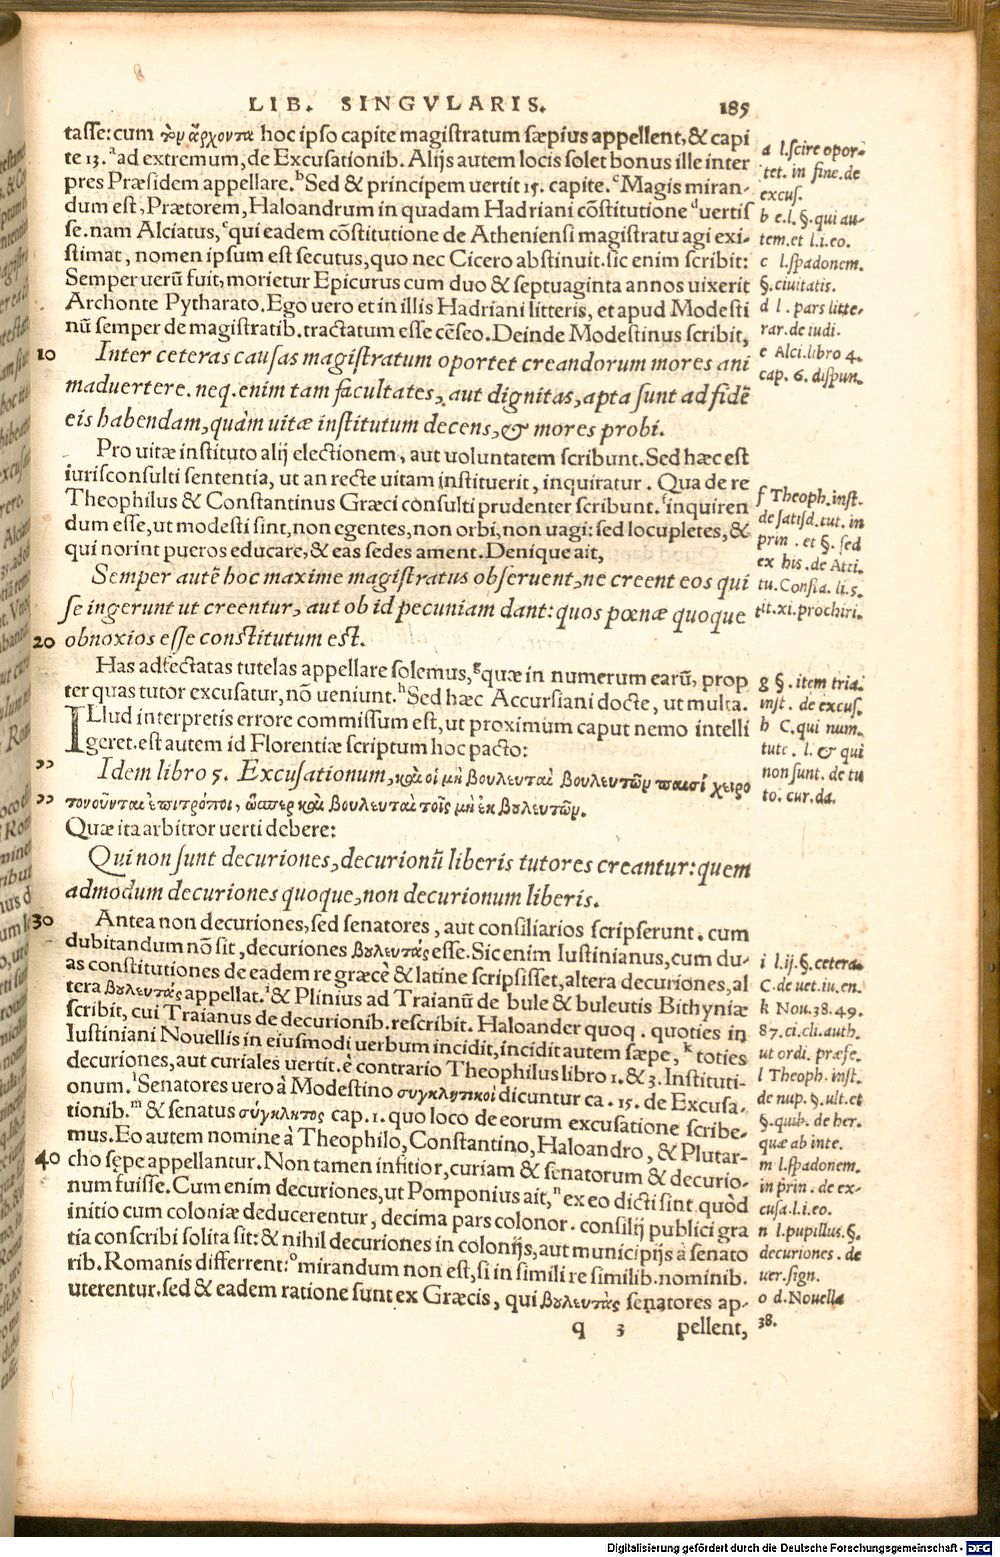 LIB. SINGVLARIS. 185
tasse: cum τὸν ἄρχοντα hoc ipso capite magistratum sæpius appellent, & capi
te 13. ᵃad extremum, de Excusationib. Alijs autem locis solet bonus ille inter
pres Præsidem appellare.ᵇ Sed & principem uertit 15. capite.ᶜ Magis miran-
dum est, Prætorem, Haloandrum in quadam Hadriani cõstitutione ᵈuertis
se. nam Alciatus, ᵉqui eadem cõstitutione de Atheniensi magistratu agi exi-
stimat, nomen ipsum est secutus, quo nec Cicero abstinuit. sic enim scribit:
Semper uerũ fuit, morietur Epicurus cum duo & septuaginta annos uixerit
Archonte Pytharato. Ego uero et in illis Hadriani litteris, et apud Modesti
nũ semper de magistratib. tractatum esse cẽseo. Deinde Modestinus scribit,
10 Inter ceteras causas magistratum oportet creandorum mores ani
maduertere. neq. enim tam facultates, aut dignitas, apta sunt ad fidẽ
eis habendam, quàm uitæ institutum decens, & mores probi.
Pro uitæ instituto alij electionem, aut uoluntatem scribunt. Sed hæc est
iurisconsulti sententia, ut an recte uitam instituerit, inquiratur. Qua de re
Theophilus & Constantinus Græci consulti prudenter scribunt. ᶠinquiren
dum esse, ut modesti sint, non egentes, non orbi, non uagi: sed locupletes, &
qui norint pueros educare, & eas sedes ament. Denique ait,
Semper autẽ hoc maxime magistratus obseruent, ne creent eos qui
se ingerunt ut creentur, aut ob id pecuniam dant: quos pœnæ quoque
20 obnoxios esse constitutum est.
Has adfectatas tutelas appellare solemus, ᵍquæ in numerum earũ, prop
ter quas tutor excusatur, nõ ueniunt.ʰ Sed hæc Accursiani docte, ut multa.
ILlud interpretis errore commissum est, ut proximum caput nemo intelli
geret. est autem id Florentiæ scriptum hoc pacto:
,, Idem libro 5. Excusationum, καὶ οἱ μὴ βουλευταὶ βουλευτῶν παισὶ χειρο
,, τονοῦνται ἐπιτρόποι, ὥσπερ καὶ βουλευταὶ τοῖς μὴ ἐκ βουλευτῶν.
Quæ ita arbitror uerti debere:
Qui non sunt decuriones, decurionũ liberis tutores creantur: quem
admodum decuriones quoque, non decurionum liberis.
30 Antea non decuriones, sed senatores, aut consiliarios scripserunt. cum
dubitandum nõ sit, decuriones βουλευτάς esse. Sic enim Iustinianus, cum du-
as constitutiones de eadem re græcè & latine scripsisset, altera decuriones, al
tera βουλευτάς appellat.ⁱ & Plinius ad Traianũ de bule & buleutis Bithyniæ
scribit, cui Traianus de decurionib. rescribit. Haloander quoq. quoties in
Iustiniani Nouellis in eiusmodi uerbum incidit, incidit autem sæpe, ᵏ toties
decuriones, aut curiales uertit. è contrario Theophilus libro 1. & 3. Instituti-
onum.ˡ Senatores uero à Modestino συγκλητικοὶ dicuntur ca. 15. de Excusa-
tionib.ᵐ & senatus σύγκλητος cap. 1. quo loco de eorum excusatione scribe-
mus. Eo autem nomine à Theophilo, Constantino, Haloandro, & Plutar-
40 cho sępe appellantur. Non tamen infitior, curiam & senatorum & decurio-
num fuisse. Cum enim decuriones, ut Pomponius ait, ⁿ ex eo dicti sint quòd
initio cum coloniæ deducerentur, decima pars colonor. consilij publici gra
tia conscribi solita sit: & nihil decuriones in colonijs, aut municipijs à senato
rib. Romanis differrent: ᵒmirandum non est, si in simili re similib. nominib.
uterentur. sed & eadem ratione sunt ex Græcis, qui βουλευτὰς senatores ap-
q 3 pellent,
a l. scire opor-
tet. in fine. de
excus.
b e. l. §. qui au-
tem. et l. i. eo.
c l. spadonem.
§. ciuitatis.
d l. pars litte-
rar. de iudi.
e Alci. libro 4.
cap. 6. dispun.
f Theoph. inst.
de satisd. tut. in
prin. et §. sed
ex his. de Atti.
tu. Consta. li. 5.
tit. xi. prochiri.
g §. item tria.
inst. de excus.
h C. qui num.
tute. l. & qui
non sunt. de tu
to. cur. da.
i l. ij. §. cetera.
C. de uet. iu. en.
k Nou. 38. 49.
87. ci. cli. auth.
ut ordi. præfe.
l Theoph. inst.
de nup. §. ult. et
§. quib. de her.
quæ ab inte.
m l. spadonem.
in prin. de ex-
cusa. l. i. eo.
n l. pupillus. §.
decuriones. de
uer. sign.
o d. Nouella
38.
Digitalisierung gefördert durch die Deutsche Forschungsgemeinschaft - DFG